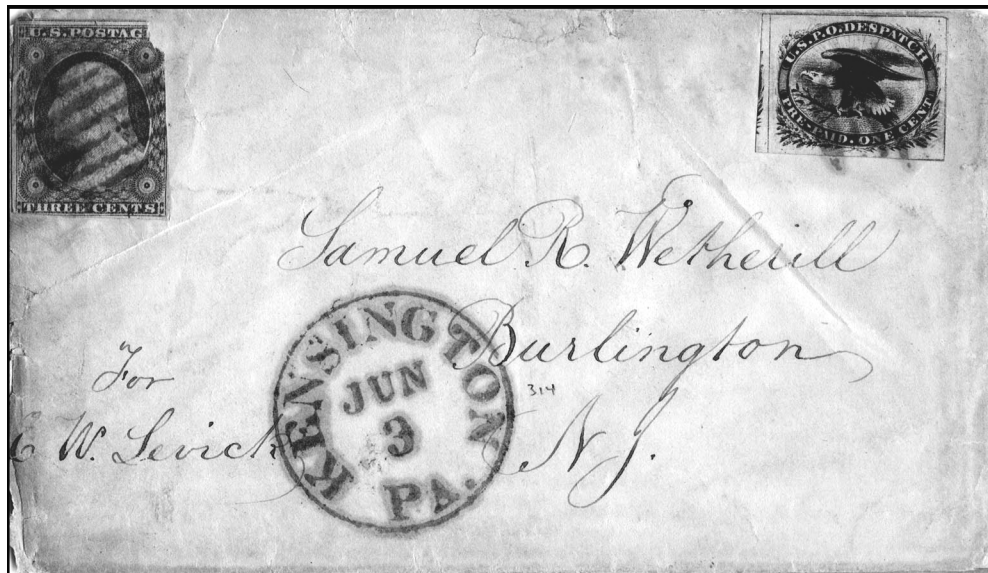 U.S. POSTAG
THREE CENTS
U.S.P.O. DESPATCH
PRE-PAID. ONE CENT
Samuel R. Wetherill
Burlington
N J.
314
For
C W. Levick
KENSINGTON
JUN
3
PA.